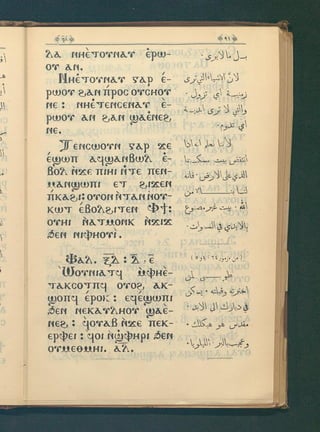 ⲗⲗⲁ ⲛⲏⲉ̀ⲧⲟⲩⲛⲁⲩ ⲉ̀ⲣⲱ-
ⲟⲩ ⲁⲛ.
Ⲛⲏⲉ̀ⲧⲟⲩⲛⲁⲩ ⲅⲁⲣ ⲉ̀-
ⲣⲱⲟⲩ ϩⲁⲛ ⲡⲣⲟⲥ ⲟⲩⲥⲏⲟⲩ
ⲛⲉ : ⲛⲏⲉ̀ⲧⲉⲛⲥⲉⲛⲁⲩ ⲉ̀-
ⲣⲱⲟⲩ ⲁⲛ ϩⲁⲛ ϣⲁⲉ̀ⲛⲉϩ
ⲛⲉ.
Ⲧⲉⲛⲥⲱⲟⲩⲛ ⲅⲁⲣ ϫⲉ
ⲉ̀ϣⲱⲡ ⲁϥϣⲁⲛⲃⲱⲗ ⲉ̀-
ⲃⲟⲗ ⲛ̀ϫⲉ ⲡⲓⲏⲓ ⲛ̀ⲧⲉ ⲡⲉⲛ-
ⲙⲁⲛϣⲱⲡⲓ ⲉⲧ ϩⲓϫⲉⲛ
ⲡⲕⲁϩⲓ : ⲟⲩⲟⲛ ⲛ̀ⲧⲁⲛ ⲛ̀ⲟⲩ-
ⲕⲱⲧ ⲉ̀ⲃⲟⲗϩⲓⲧⲉⲛ Ⲫϯ :
ⲟⲩⲏⲓ ⲛ̀ⲁⲧⲙⲟⲛⲕ ⲛ̀ϫⲓϫ
ϧⲉⲛ ⲛⲓⲫⲏⲟⲩⲓ̀.
Ⲯⲁⲗ. ⲝ̅ⲇ̅ : ⲇ̅ . ⲉ̅
Ⲱⲟⲩⲛⲓⲁⲧϥ ⲙ̀ⲫⲏⲉ̀-
ⲧⲁⲕⲥⲟⲧⲡϥ ⲟⲩⲟϩ, ⲁⲕ-
ϣⲟⲡϥ ⲉ̀ⲣⲟⲕ : ⲉϥⲉ̀ϣⲱⲡⲓ
ϧⲉⲛ ⲛⲉⲕⲁⲩⲗⲏⲟⲩ ϣⲁⲉ̀-
ⲛⲉϩ : ϥⲟⲩⲁⲃ ⲛ̀ϫⲉ ⲡⲉⲕ-
ⲉⲣⲫⲉⲓ : ϥⲟⲓ ⲛ̀ϣ̀ⲫⲏⲣⲓ ϧⲉⲛ
ⲟⲩⲙⲉⲑⲙⲏⲓ. ⲁⲗ.
٩١
بل ما لا يرى .
لان الاشياء التي ترى
زمنية اي تزول .
والتي لا ترى ابدية
اي تدوم .
لاننا نعلم انه اذا
انتقض بيت مسكننا
الذي على الارض . فانه
الله بيت غير مصنوع
بالايدي في السموات .
اخترته وقبلته . يسكن
في ديارك الى الابد .
مقدس هو هيكلك .
وعجيب بالبر الليلويا .